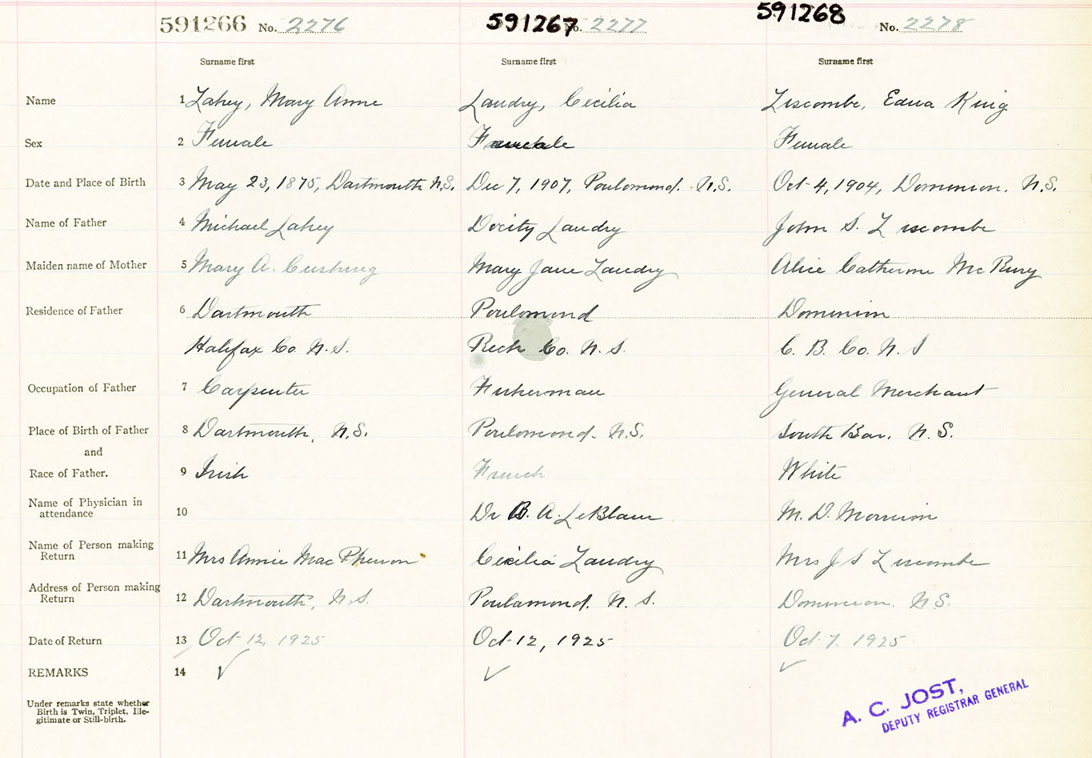 591266 No. 2276 591267 No. 2277 591268 No. 2278
Surname first Surname first Surname first
Name 1 Lahey, Mary Anne Landry, Cecilia Liscombe, Edna King
Sex 2 Female Female Female
Date and Place of Birth 3 May 23, 1875, Dartmouth N.S. Dec 7, 1907, Poulomond. N.S. Oct 4, 1904, Dominion. N.S.
Name of Father 4 Michael Lahey Docity Landry John S. Liscombe
Maiden name of Mother 5 Mary A. Cushing Mary Jane Landry Alice Catherine McRury
Residence of Father 6 Dartmouth Poulomond Dominion
Halifax Co N.S. Rich Co. N.S. C. B. Co N.S
Occupation of Father 7 Carpenter Fisherman General Merchant
Place of Birth of Father 8 Dartmouth, N.S. Poulomond. N.S. South Bar. N.S.
and
Race of Father. 9 Irish French White
Name of Physician in
attendance 10 Dr B. A. LeBlanc M. D. Morrison
Name of Person making
Return 11 Mrs Annie MacPherson Cecilia Landry Mrs J S Liscombe
Address of Person making
Return 12 Dartmouth, N.S. Poulamond. N.S. Dominion. N.S.
Date of Return 13 Oct 12, 1925 Oct 12, 1925 Oct 7. 1925
REMARKS 14 ✓ ✓ ✓
Under remarks state whether
Birth is Twin, Triplet, Ille-
gitimate or Still-birth.
A. C. JOST,
DEPUTY REGISTRAR GENERAL